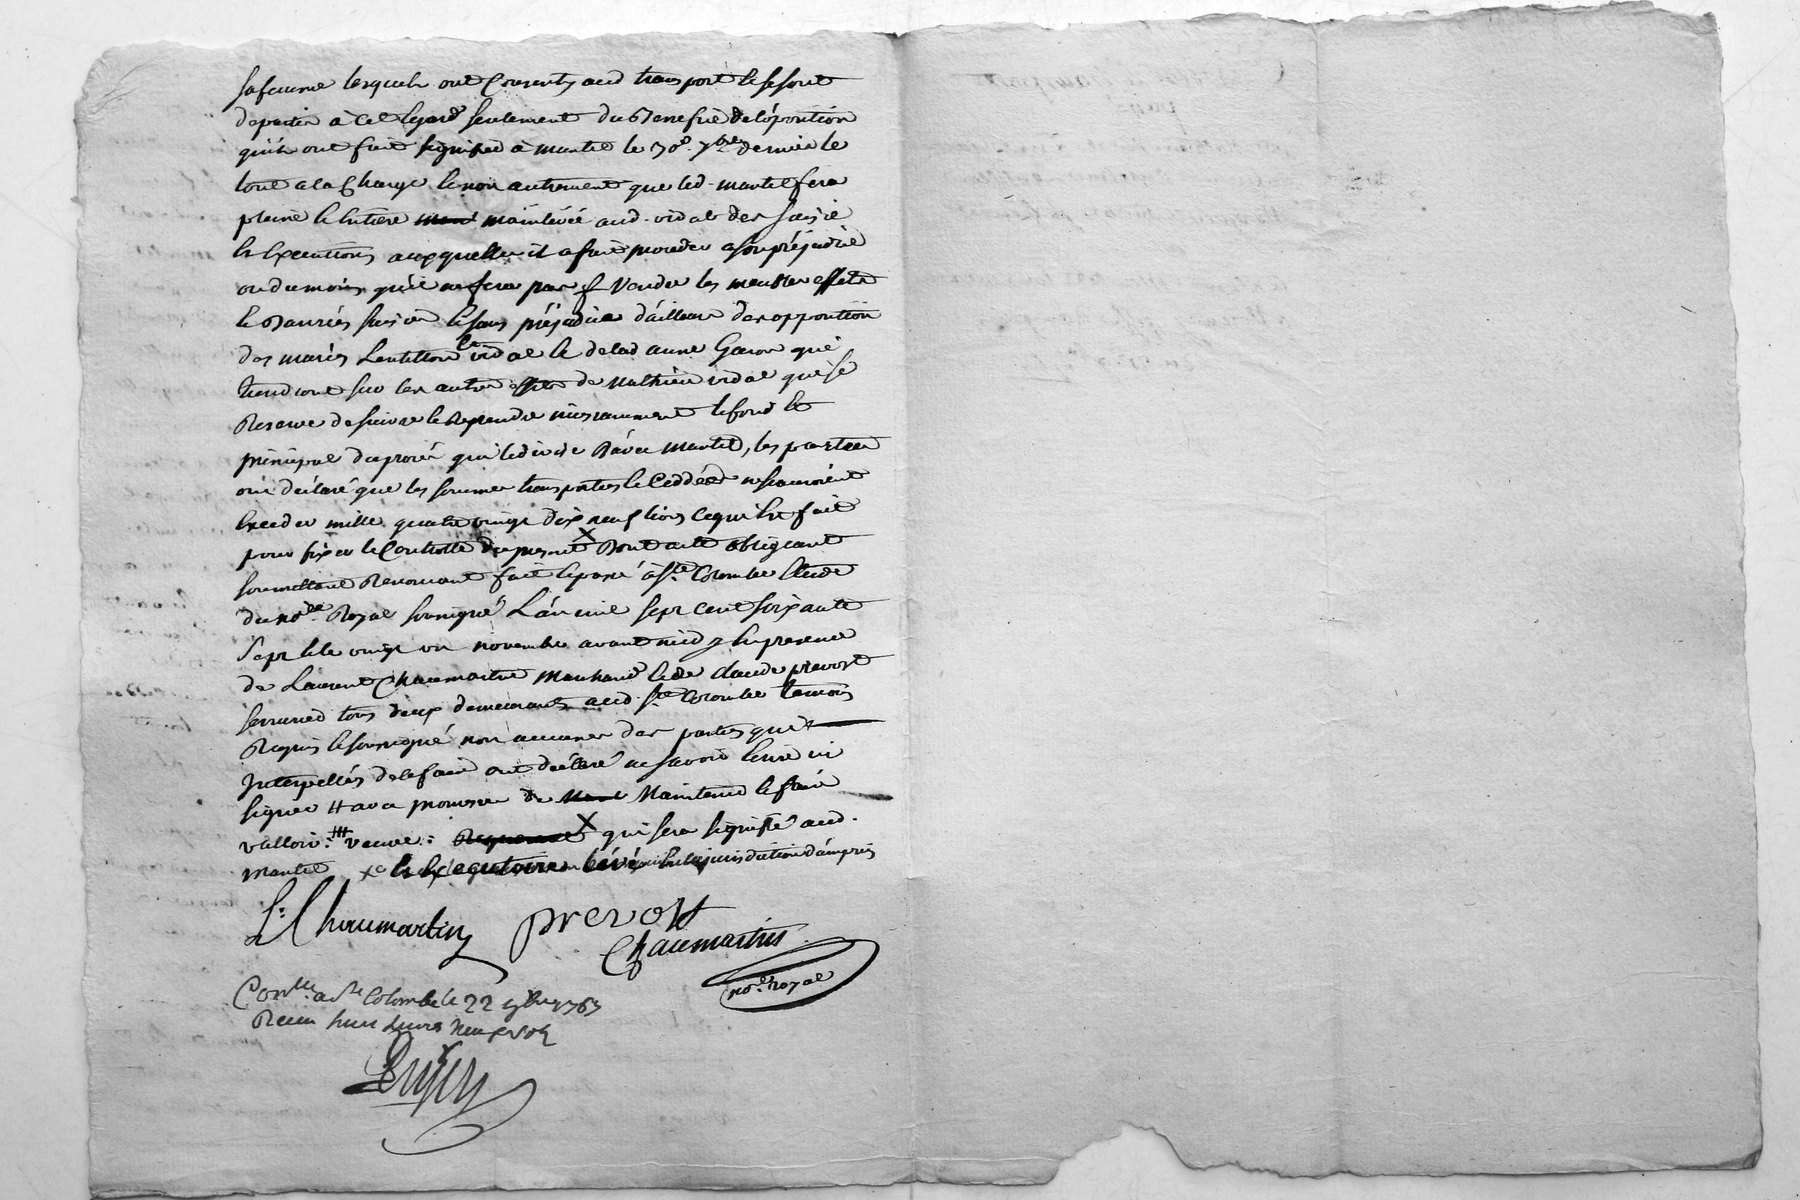 sa femme lesquels ont consenty aud transport et se sont
departis à cet egard seulement du benefice de l'opposition
qu'ils ont fait signifier à mantel le 30e. 7bre dernier le
tout a la charge et non autrement que led. mantel fera
pleine et entiere mainlevée aud. vidal des saisie
et executions auxquelles il a fait proceder a son préjudice
ou du moins qu'il ne fera pas vendre les meubles effets
et danrées saisies et sans préjudice d'ailleurs des opposition
des mariés Lentillon et vidal et de lad anne Garon qui
tiendront sur les autres effets de Mathieu vidal qui se
Reserve de suivre et Reprendre incessamment le fond et
principal du procès qui avec Mantel, les parties
ont déclaré que les sommes transportées et ceddées ne sauroient
exceder mille quatre vingt dix neuf livres ce qui est fait
pour fixer le Controlle du present X Dont acte obligeant
soumettant Renonçant fait et passé à Ste. Colombe Etude
du nore. Royal soussigné L'an mil sept cent soixante
Sept et le vingt un novembre avant midy En presence
de Laurent Chaumartin Marchand et de claude prevost
serrurier tous deux demeurants aud. Ste Colombe temoins
Requis et soussigné non aucunes des parties qui
Interpellés de le faire ont déclaré ne savoir Ecrire ni
signer # avec promesse de Maintenir et faire
valloir. ### veuve: X qui sera signifié aud.
mantel
Ls. Chaumartin prevost
Chaumartin
nore. royal
Conlle. a Ste Colombe le 22 9bre 1767
Recu huit Livres neuf sols